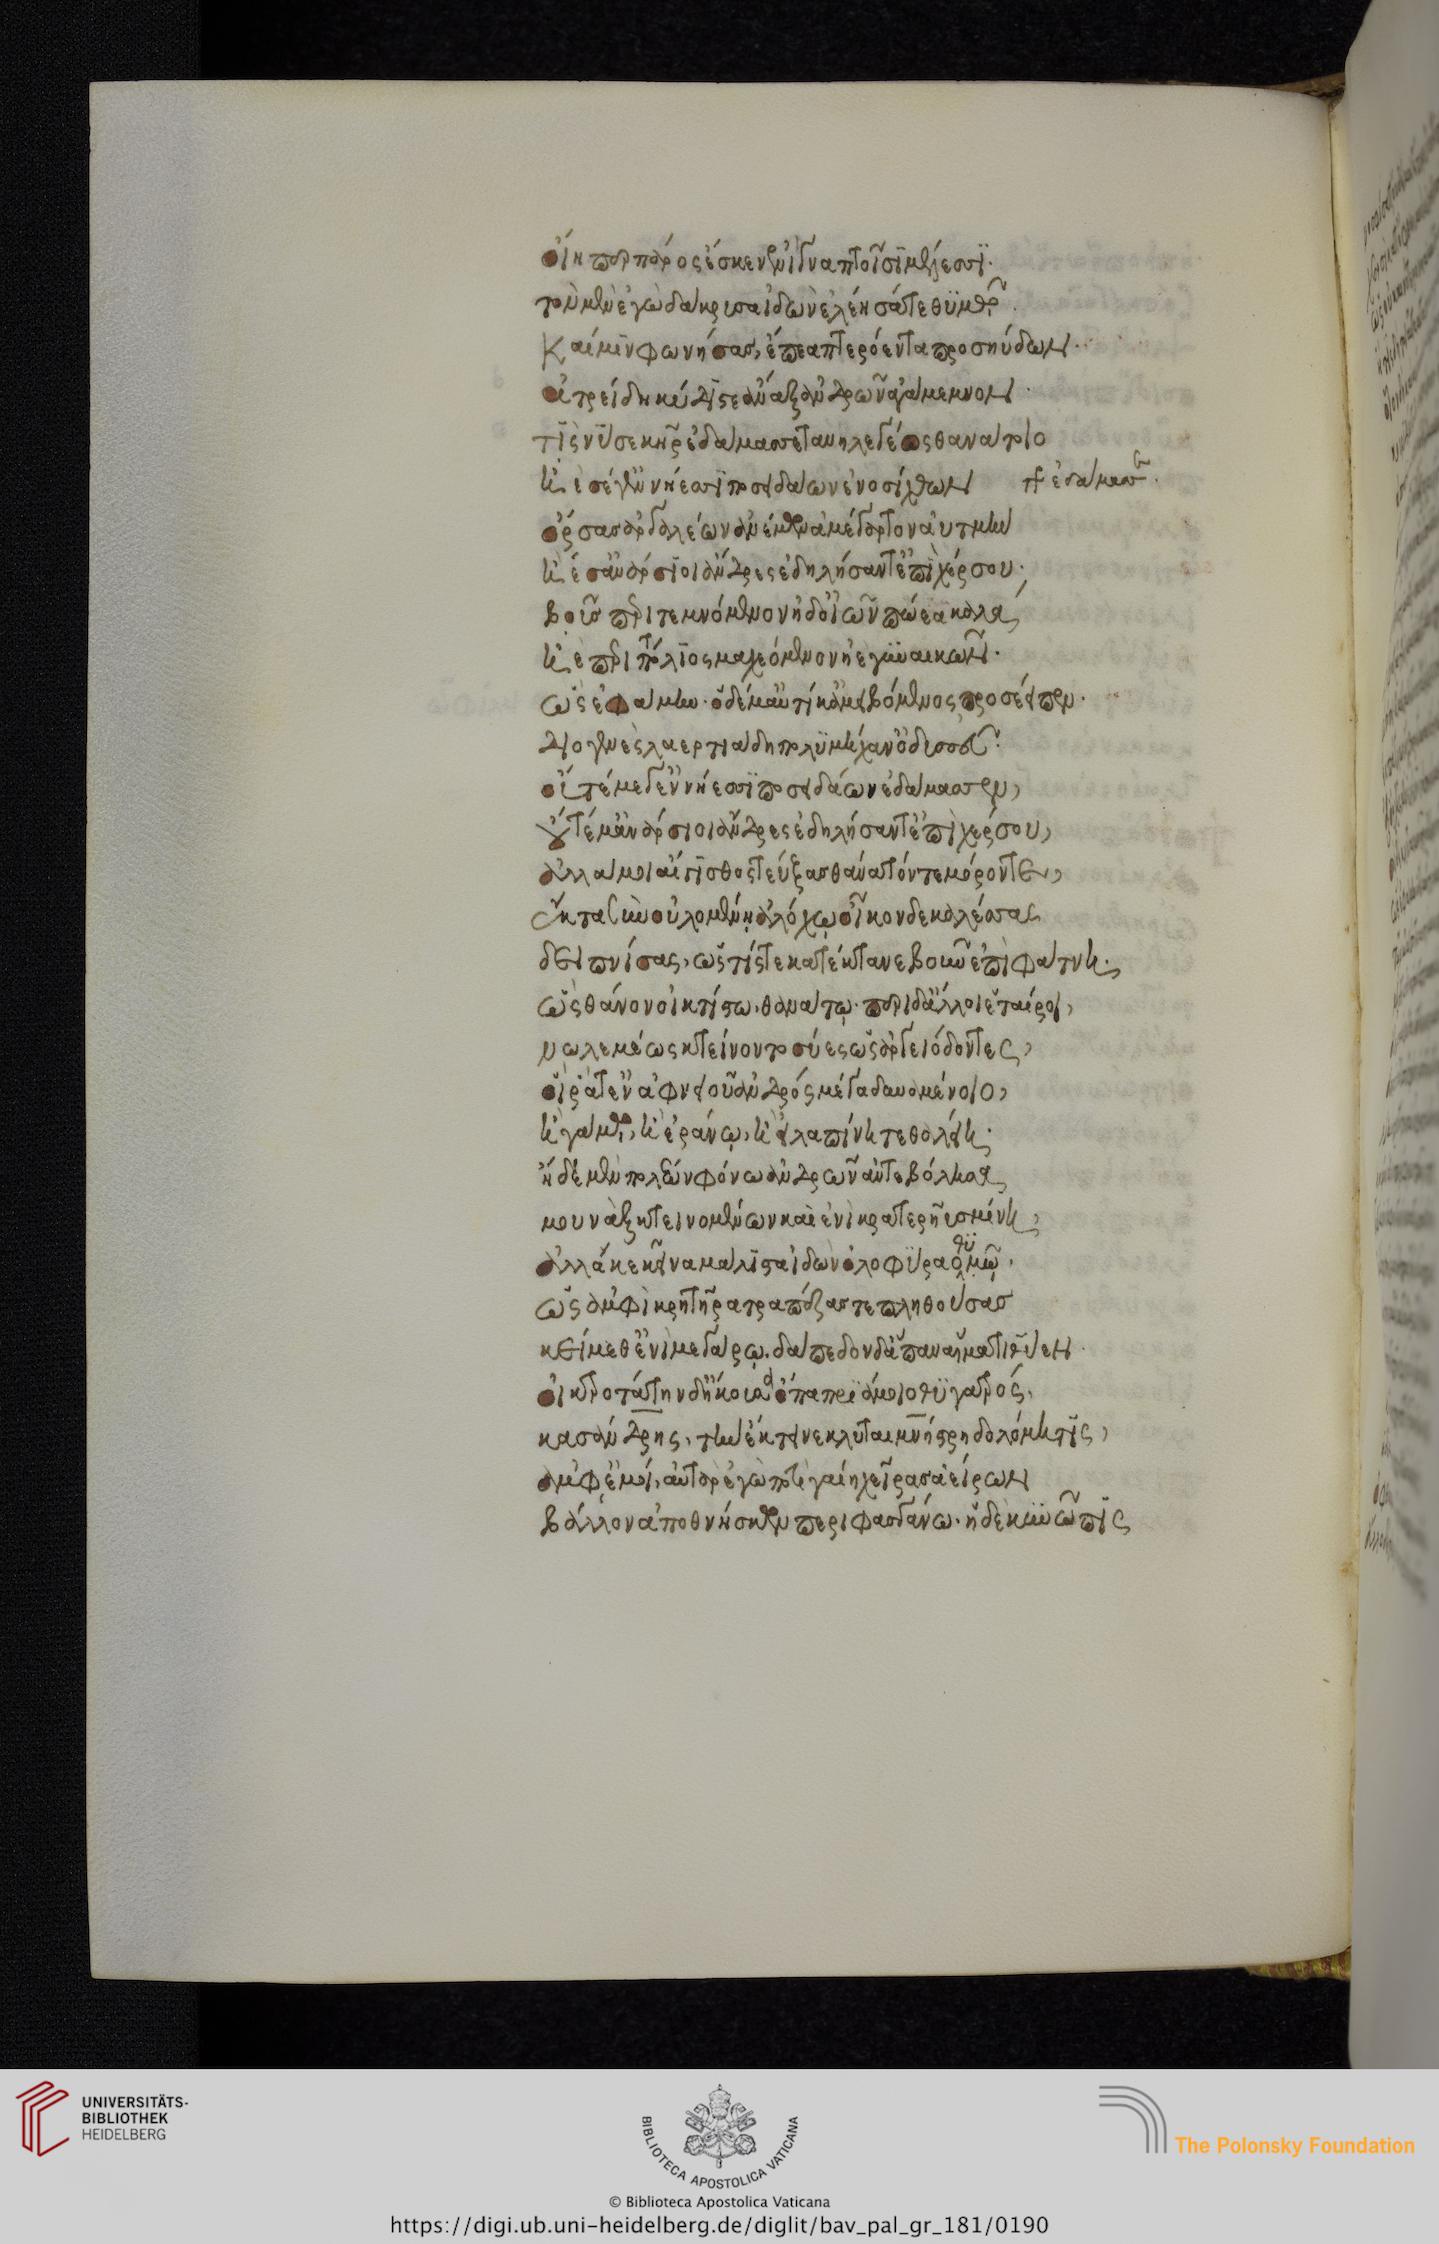 οἵη περ πάρος ἔσκεν ἐνὶ γναμπτοῖσι μέλεσσι.
τὸν μὲν ἐγὼ δάκρυσα ἰδὼν ἐλέησά τε θυμῷ.
Καί μιν φωνήσας, ἔπεα πτερόεντα προσηύδων.
ἀτρείδη κύδιστε ἄναξ ἀνδρῶν ἀγάμεμνον.
τίς νύ σε κὴρ ἐδάμασσε τανηλεγέος θανάτοιο
ἠὲ σέ γ' ἐν νήεσσι ποσειδάων ἐνοσίχθων
ὄρσας ἀργαλέων ἀνέμων ἀμέγαρτον ἀϋτμὴν
ἠέ σ' ἀνάρσιοι ἄνδρες ἐδηλήσαντ' ἐπὶ χέρσου.
βοῦς περιτεμνόμενον ἠδ' οἰῶν πώεα καλά,
ἠὲ περὶ πτόλιος μαχεόμενον ἠὲ γυναικῶν.
ὣς ἐφάμην. ὁ δέ μ' αὐτίκ' ἀμειβόμενος προσέειπεν.
διογενὲς λαερτιάδη πολυμήχαν' ὀδυσσεῦ.
οὔτέ μέ γ' ἐν νήεσσι ποσειδάων ἐδάμασσεν,
οὔτέ μ' ἀνάρσιοι ἄνδρες ἐδηλήσαντ' ἐπὶ χέρσου,
ἀλλά μοι αἴγισθος τεύξας θάνατόν τε μόρον τε,
ἔκτα σὺν οὐλομένῃ ἀλόχῳ οἶκον δὲ καλέσσας
δειπνίσας, ὥς τίς τε κατέκτανε βοῦν ἐπὶ φάτνῃ.
ὣς θάνον οἰκτίστῳ θανάτῳ. περὶ δ' ἄλλοι ἑταῖροι,
νωλεμέως κτείνοντο σύες ὣς ἀργειόδοντες,
οἵ ῥά τ' ἐν ἀφνειοῦ ἀνδρός μέγα δυναμένοιο,
ἢ γάμῳ, ἢ ἐράνῳ, ἢ εἰλαπίνῃ τεθαλυίῃ.
ἤδη μὲν πολέων φόνῳ ἀνδρῶν ἀντεβόλησας,
μουνὰξ κτεινομένων καὶ ἐνὶ κρατερῇ ὑσμίνῃ,
ἀλλά κε κεῖνα μάλιστα ἰδὼν ὀλοφύραο θυμῷ,
ὡς ἀμφὶ κρητῆρα τραπέζας τε πληθούσας
κείμεθ' ἐνὶ μεγάρῳ. δάπεδον δ' ἅπαν αἵματι θῦεν.
οἰκτροτάτην δ' ἤκουσα ὄπα πριάμοιο θυγατρός,
κασάνδρης, τὴν ἔκτεινε κλυταιμνήστρη δολόμητις,
ἀμφ' ἐμοί, αὐτὰρ ἐγὼ ποτὶ γαίῃ χεῖρας ἀείρων
βάλλον ἀποθνήσκων περὶ φασγάνῳ. ἡ δὲ κυνῶπις
UNIVERSITÄTS-
BIBLIOTHEK
HEIDELBERG
BIBLIOTECA APOSTOLICA VATICANA
The Polonsky Foundation
© Biblioteca Apostolica Vaticana
https://digi.ub.uni-heidelberg.de/diglit/bav_pal_gr_181/0190